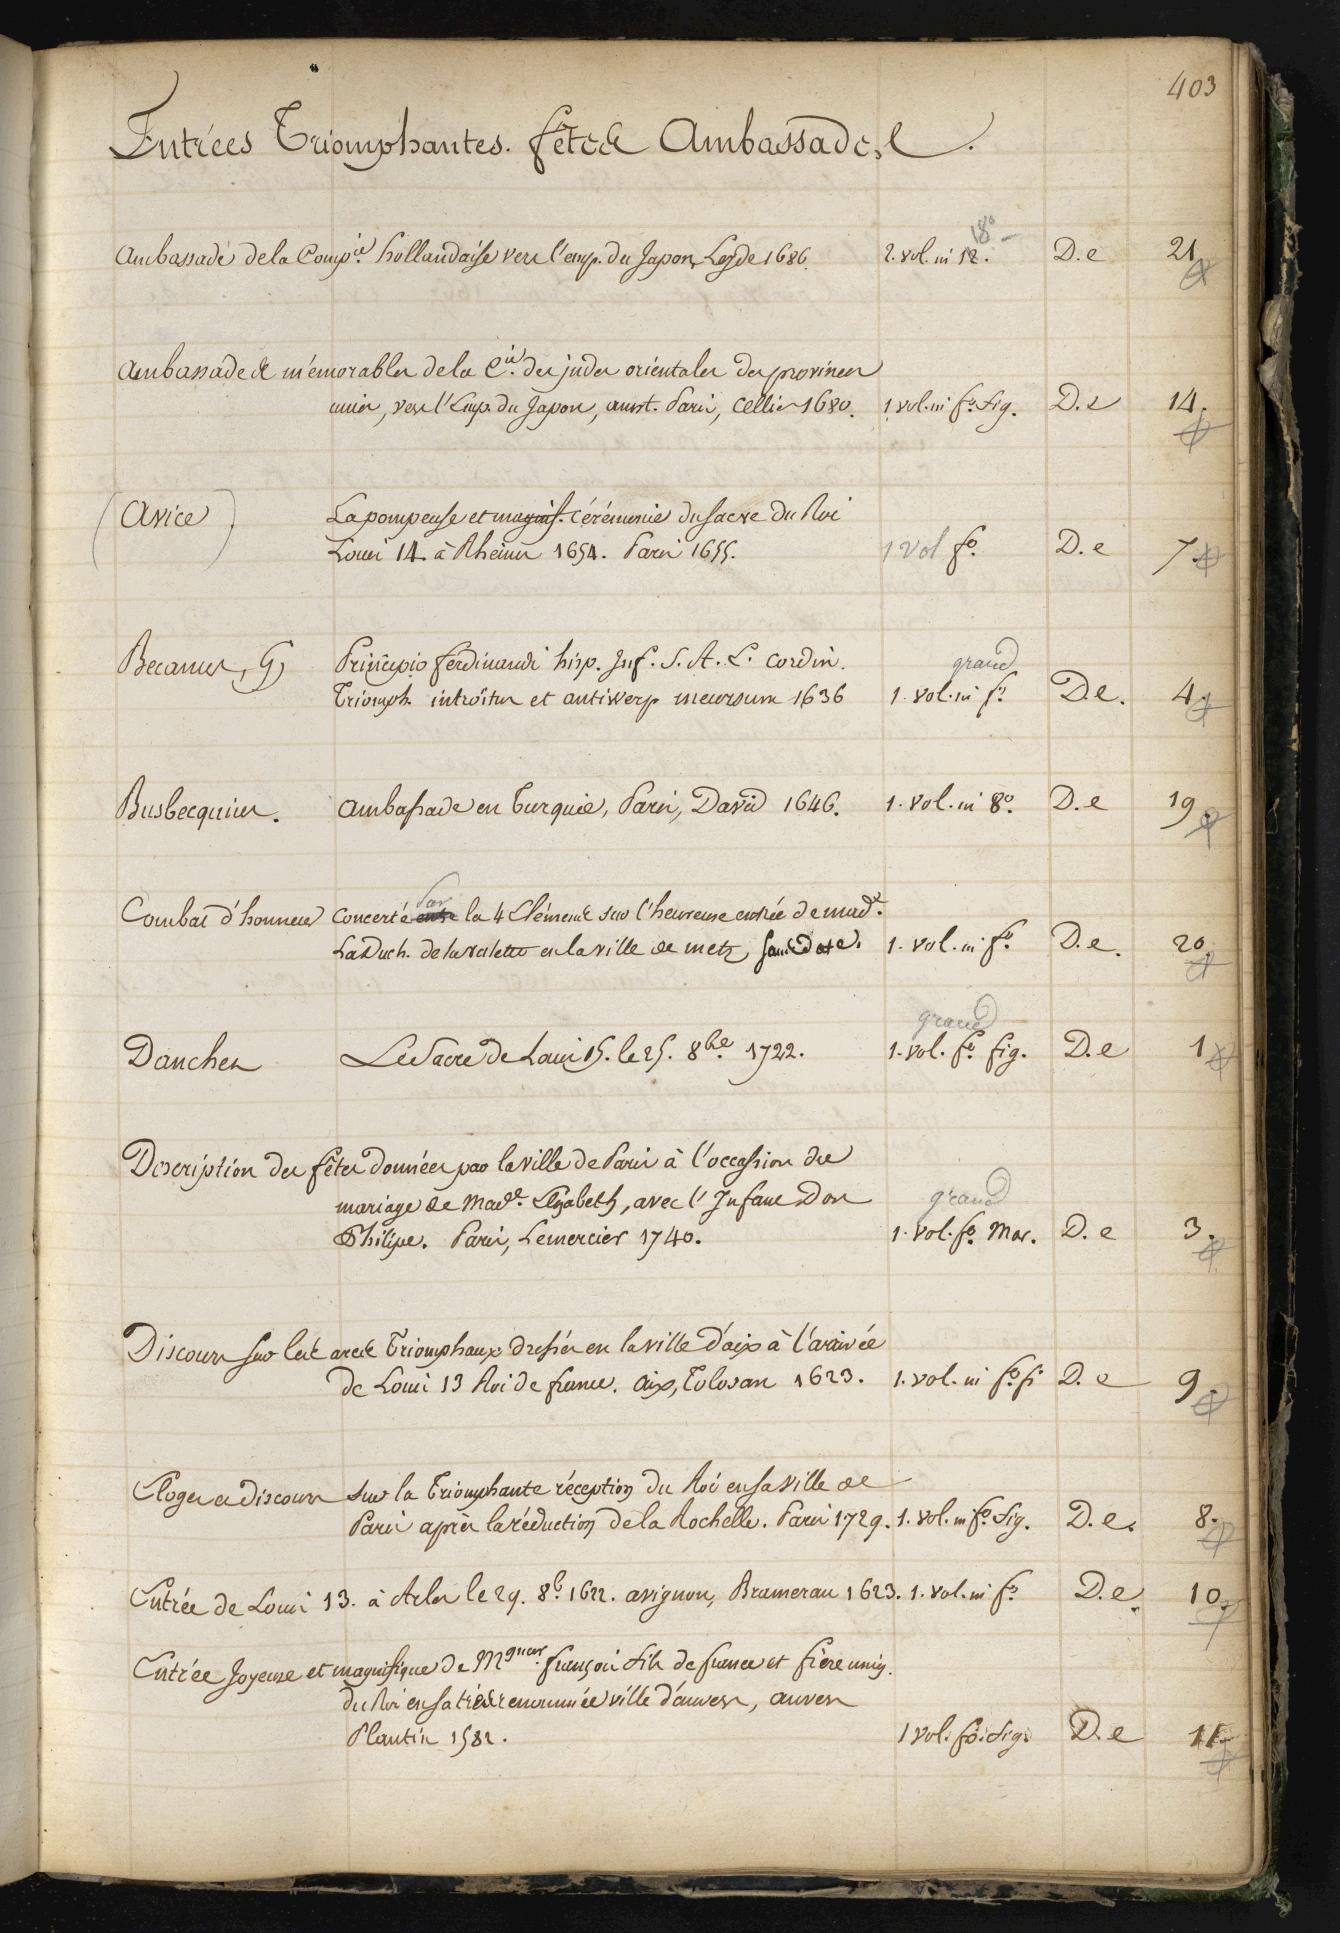 403
Entrées Triomphantes. fêtes & Ambassades.
Ambassade de la Comp.ie hollandaise vers l'emp. du Japon, Leyde 1686. 2. vol. in 12. 18º D. e 21.
Ambassades mémorables de la C.ie des indes orientales des provinces
unies, vers l'Emp. du Japon, amst. Paris, Cellier 1680. 1 vol. in fº. fig. D. e 14.
(Avice) La pompeuse et magnif. cérémonie du sacre du Roi
Louis 14. à Rheims 1654. Paris 1655. 1 vol fº. D. e 7.
Becanus, G, Principis ferdinandi hisp. Inf. S. A. L. Cordin. grand
Triomph. introïtus et antiwerp meursum 1636 1. vol. in fº. D. e. 4.
Busbecquius. ambassade en Turquie, Paris, David 1646. 1. vol. in 8º. D. e 19.
Combat d'honneur concerté entre par les 4 Eléments sur l'heureuse entrée de mad.e
La Duch. de la valette en la ville de metz, sans date. 1. vol. in fº. D. e. 20.
grand
Danchet Le Sacre de Louis 15. le 25. 8bre 1722. 1. vol. fº fig. D. e 1.
Description des fêtes données par la ville de Paris à l'occassion du
mariage de Made. Elizabeth, avec l'Infant Don grand
Philipe. Paris, Lemercier 1740. 1. vol. fº. Mar. D. e 3.
Discours sur les arcs Triomphaux dressés en la ville d'aix à l'arrivée
de Louis 13 Roi de france. Aix, Tolosan 1623. 1. vol. in fº. fi D. e 9.
Eloges et discours sur la Triomphante réception du Roi en sa ville de
Paris après la réduction de la Rochelle. Paris 1729. 1. vol. in fº. fig. D. e. 8.
Entrée de Louis 13. à Arles le 29. 8b. 1622. avignon, Bramereau 1623. 1. vol. in fº D. e. 10.
Entrée Joyeuse et magnifique de Mgneur. françois fils de france et frère uniq.
du Roi en sa très renommée ville d'anvers, anvers
Plantin 1582. 1 vol. fº. fig. D. e 11.